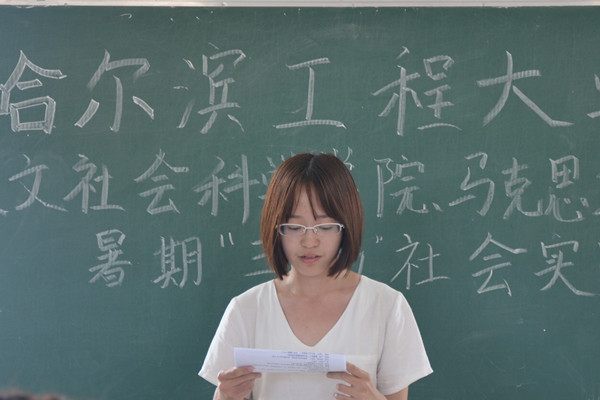 哈尔滨工程大
文社会科学院、马克思
暑期"三"社会实